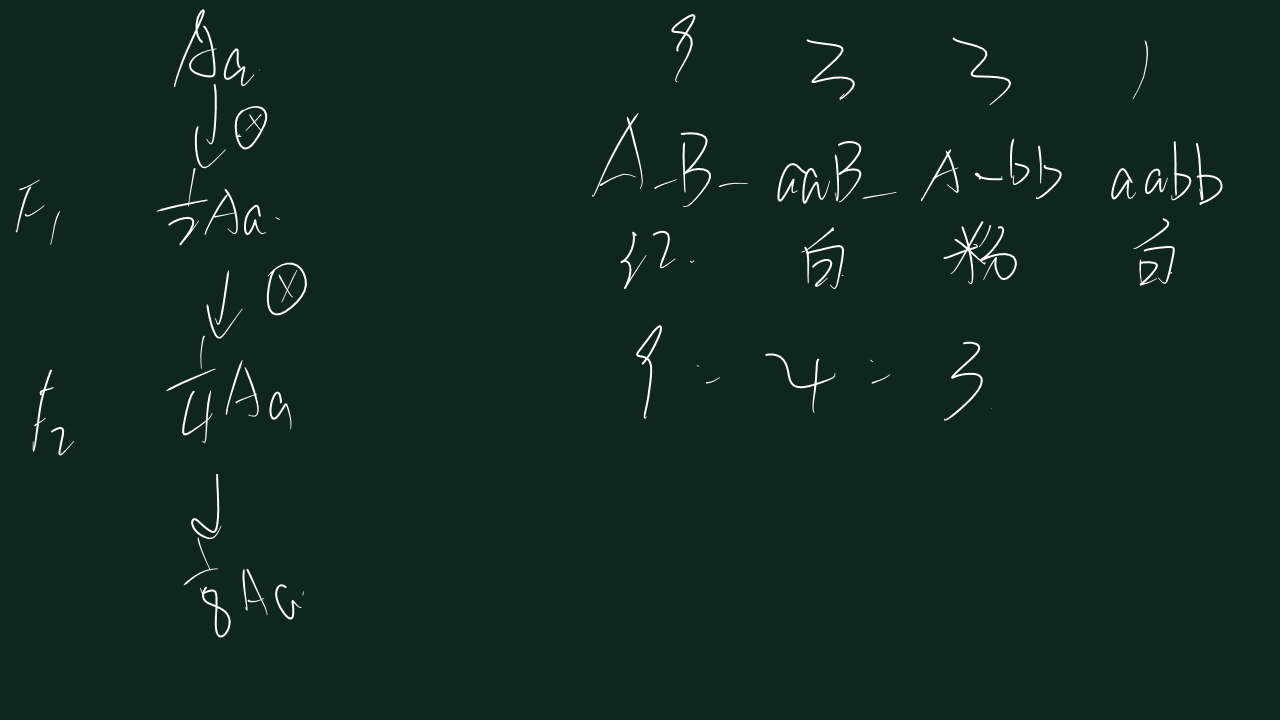 Aa
⊗
F₁ 1/2 Aa
⊗
F₂ 1/4 Aa
1/8 Aa
9 3 3 1
A_B_ aaB_ A_bb aabb
红 白 粉 白
9 : 4 : 3